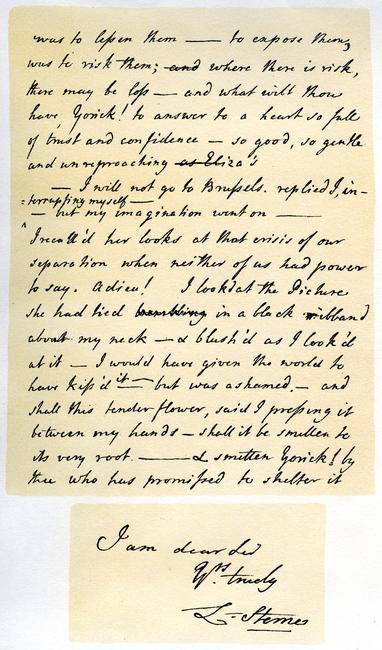 was to leſsen them — to expose them,
was to risk them; and where there is risk,
there may be loſs — and what wilt thou
have, Yorick! to answer to a heart so full
of trust and confidence — so good, so gentle
and unreproaching as Eliza's
— I will not go to Bruſsels. replied I, in-
=terrupting myself —
— but my imagination went on —
I recall'd her looks at that crisis of our
separation when neither of us had power
to say. Adieu! I look'd at the Picture
she had tied in a black ribband
about my neck — & blush'd as I look'd
at it — I would have given the world to
have kiſs'd it — but was ashamed. — and
shall this tender flower, said I preſsing it
between my hands — shall it be smitten to
its very root. — & smitten Yorick! by
thee who has promised to shelter it
I am dear Sir
Yrs truely
L- Sterne